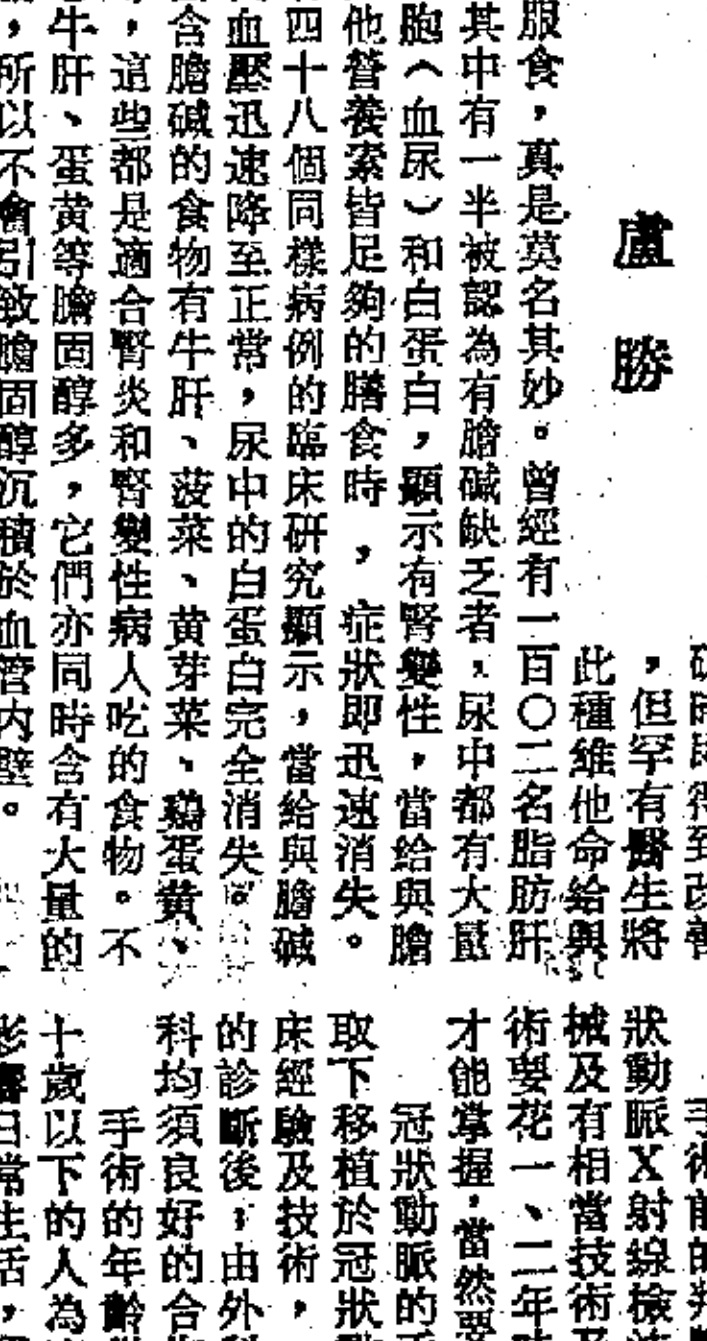 盧勝
硪時民得到改善
，但罕有醫生將
此種維他命給與
服食，真是莫名其妙。曾經有一百〇二名脂肪肝
其中有一半被認為有膽碱缺乏者，尿中都有大量
胞（血尿）和白蛋白，顯示有腎變性，當給與膽
他營養素皆足夠的膳食時，症狀即迅速消失。
四十八個同樣病例的臨床研究顯示，當給與膽碱
血壓迅速降至正常，尿中的白蛋白完全消失。
含膽碱的食物有牛肝、菠菜、黄芽菜、鷄蛋黄、
，這些都是適合腎炎和腎變性病人吃的食物。不
牛肝、蛋黄等膽固醇多，它們亦同時含有大量的
，所以不會引致膽固醇沉積於血管內壁。
手術前的判斷
狀動脈X射線檢
械及有相當技術及
術要花一、二年時
才能掌握，當然要
冠狀動脈的手
取下移植於冠狀動
床經驗及技術，
的診斷後，由外科
科均須良好的合作
手術的年齡
十歲以下的人為
影響日常生活，